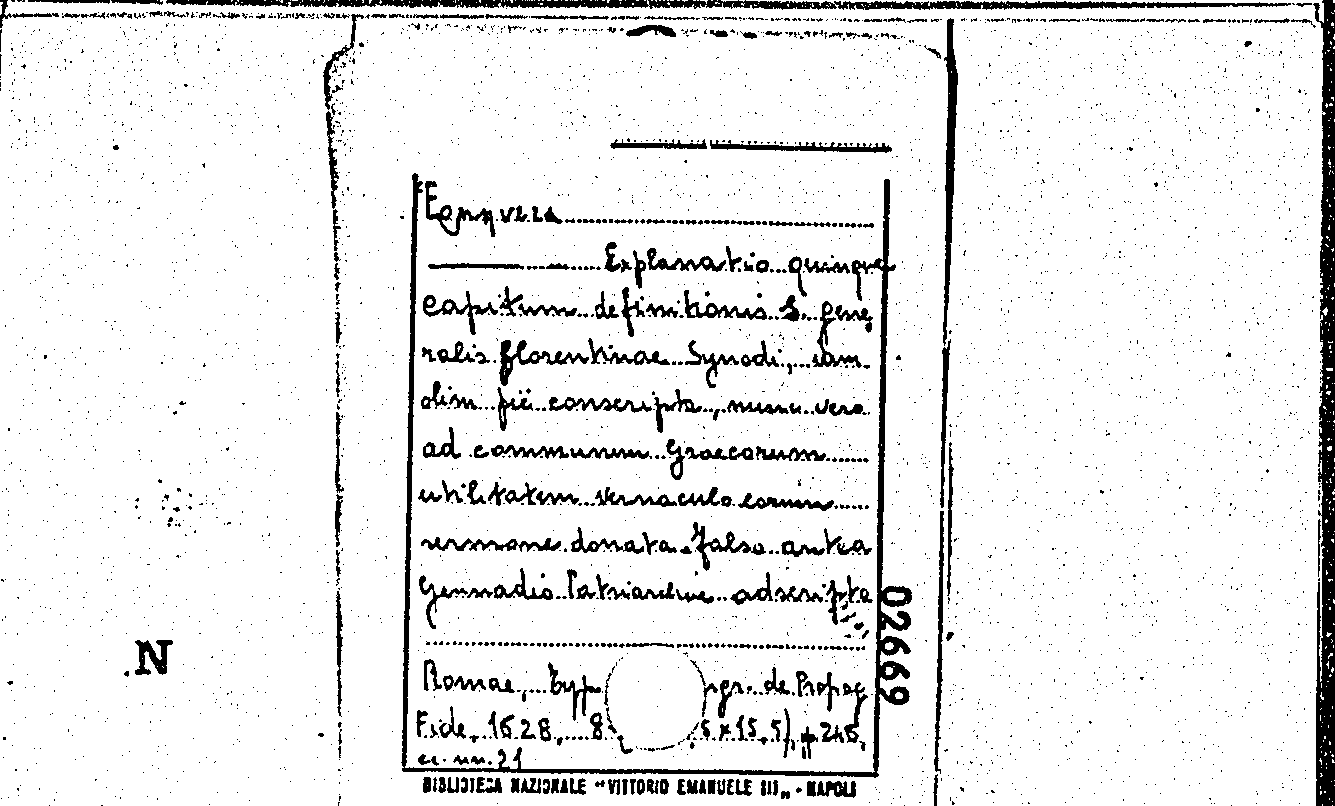 Ερμηνεια
Explanatio quinque
capitum definitionis S. gene
ralis florentinae Synodi, iam
olim piè conscripta, nunc vero
ad communem Graecorum
utilitatem vernaculo eorum
sermone donata. Falso antea
Gennadio Patriarchae adscripta
Romae, Typ ngr. de Propag
Fide, 1628, 8 5 x 15,5), p 245,
cc. nn. 21
02669
N
BIBLIOTECA NAZIONALE "VITTORIO EMANUELE III„ - NAPOLI